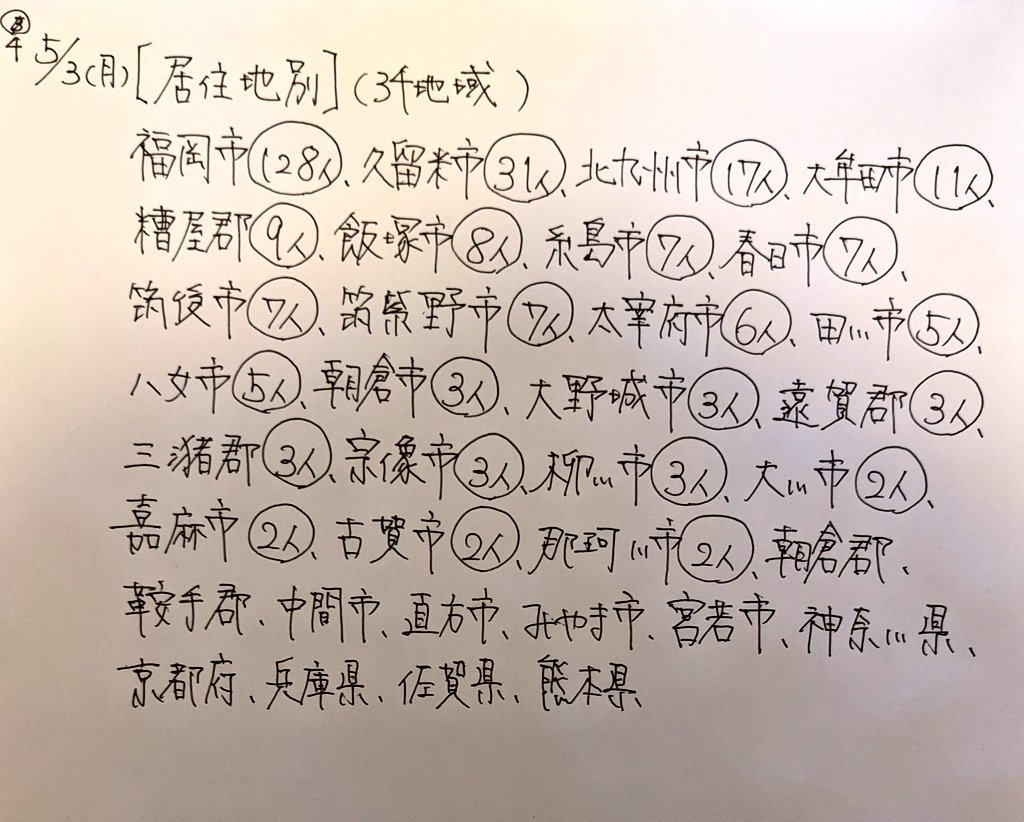 ③/4 5/3(月)[居住地別](34地域 )
福岡市128人、久留米市31人、北九州市17人、大牟田市11人、
糟屋郡9人、飯塚市8人、糸島市7人、春日市7人、
筑後市7人、筑紫野市7人、太宰府市6人、田川市5人、
八女市5人、朝倉市3人、大野城市3人、遠賀郡3人、
三潴郡3人、宗像市3人、柳川市3人、大川市2人、
嘉麻市2人、古賀市2人、那珂川市2人、朝倉郡、
鞍手郡、中間市、直方市、みやま市、宮若市、神奈川県、
京都府、兵庫県、佐賀県、熊本県、